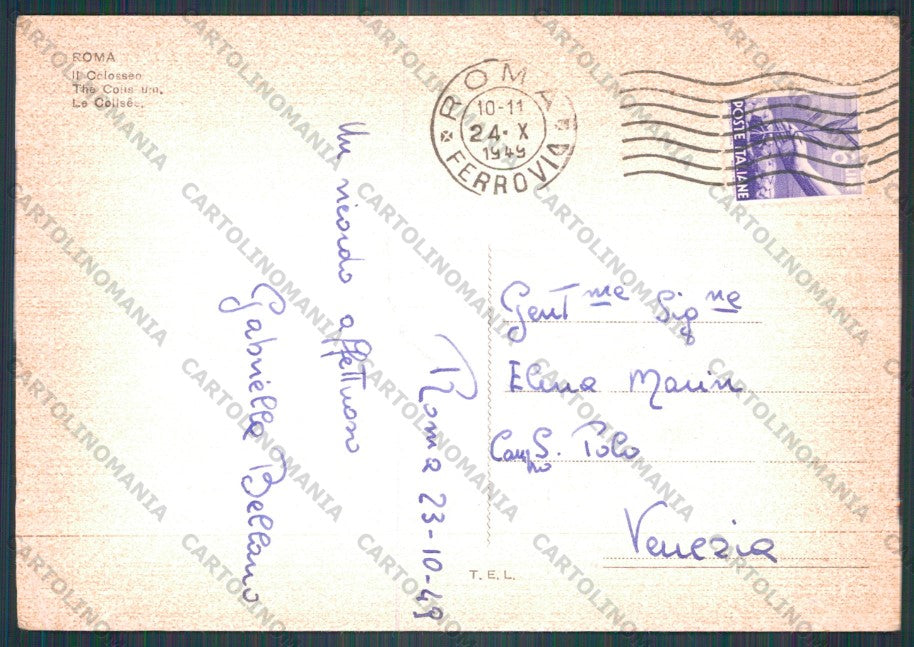 ROMA
Il Colosseo
The Colis um.
Le Colisée.
ROMA
10-11
24·X
1949
FERROVIA
POSTE ITALIANE
6
LIRE
Roma 23-10-49
Un ricordo affettuoso
Gabriella Bellano
Gent me Sig ne
Elena Marin
Campo S. Polo
Venezia
T. E. L.
CARTOLINOMANIA